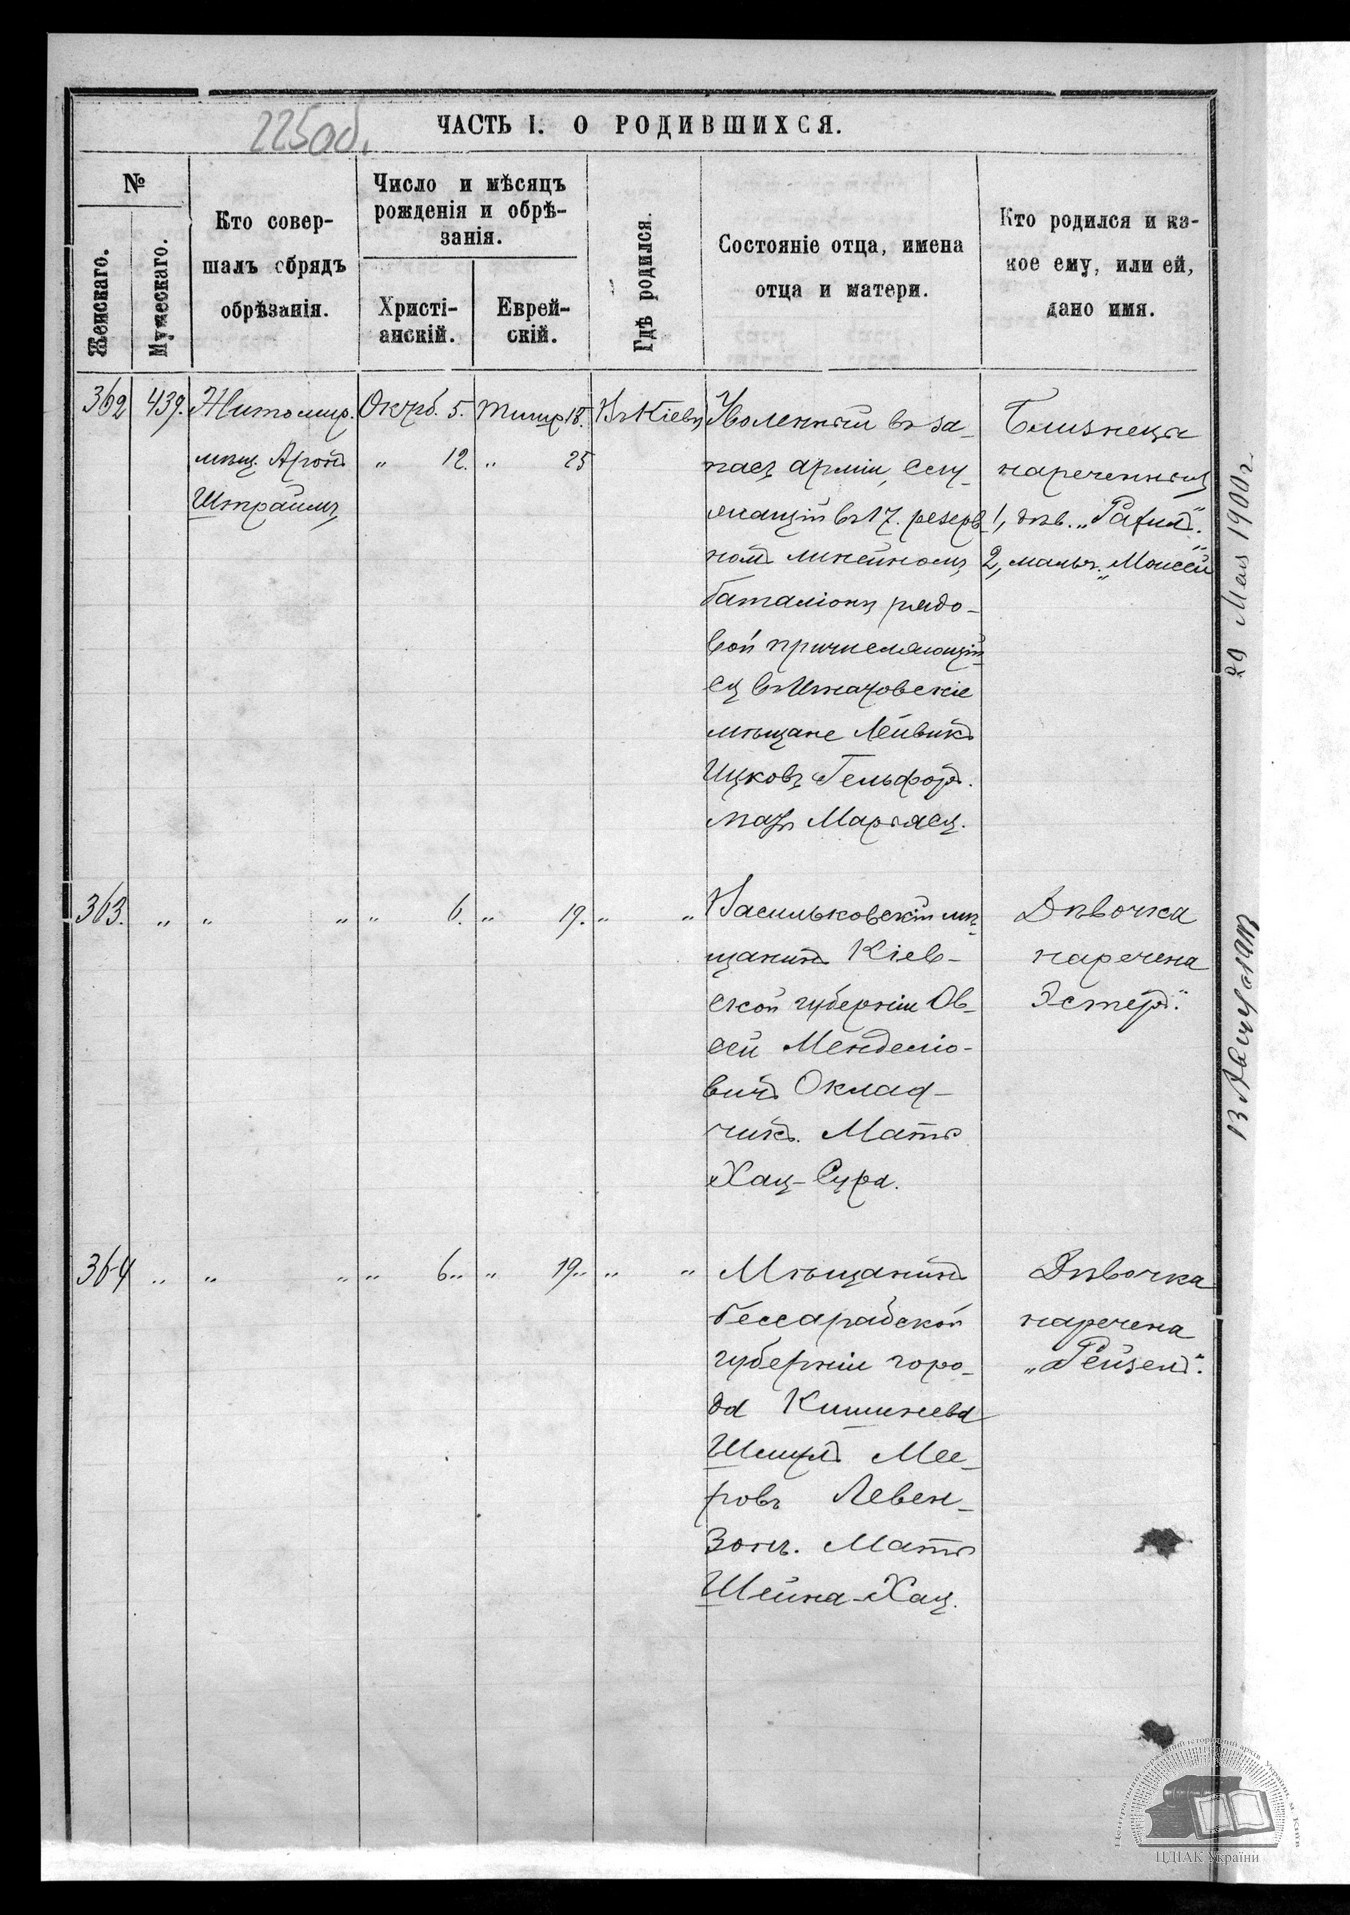 225об.
ЧАСТЬ I. О РОДИВШИХСЯ.
№
Женскаго.
Мужескаго.
Кто совер-
шалъ обрядъ
обрѣзанія.
Число и мѣсяцъ
рожденія и обрѣ-
занія.
Христі-
анскій.
Еврей-
скій.
Гдѣ родился.
Состояніе отца, имена
отца и матери.
Кто родился и ка-
кое ему, или ей,
дано имя.
362
439.
Житомир.
мѣщ. Аронъ
Штраймъ
Октб. 5.
„ 12.
Тишр 18.
„ 25
Въ Кіевѣ
Уволенный въ за-
пасъ арміи, слу-
жащій въ 17. резерв-
номъ линейномъ
баталіонѣ рядо-
вой причисляющій-
ся въ мѣщане Лейвикъ
Ицковъ Гельфондъ.
мать Марьяся.
Близнецы
нареченныя
1, дѣв. „Рахиль".
2, мальч. „Моисей"
29 Мая 1900 г.
363.
„
„ „
„ 6.
„ 19.
„ „
Васильковскій мѣ-
щанинъ Кіев-
ской губерніи Ов-
сей Менделіо-
вичъ Оклад-
чикъ. Мать
Хая-Сура.
Дѣвочка
наречена
Эстеръ".
13 Августа
364
„
„ „
„ 6„
„ 19„
„ „
Мѣщанинъ
бессарабской
губерніи горо-
да Кишинева
Шмуль Мее-
ровъ Левен-
зонъ. Мать
Шейна-Хая.
Дѣвочка
наречена
„Рейзель".
ЦДІАК України